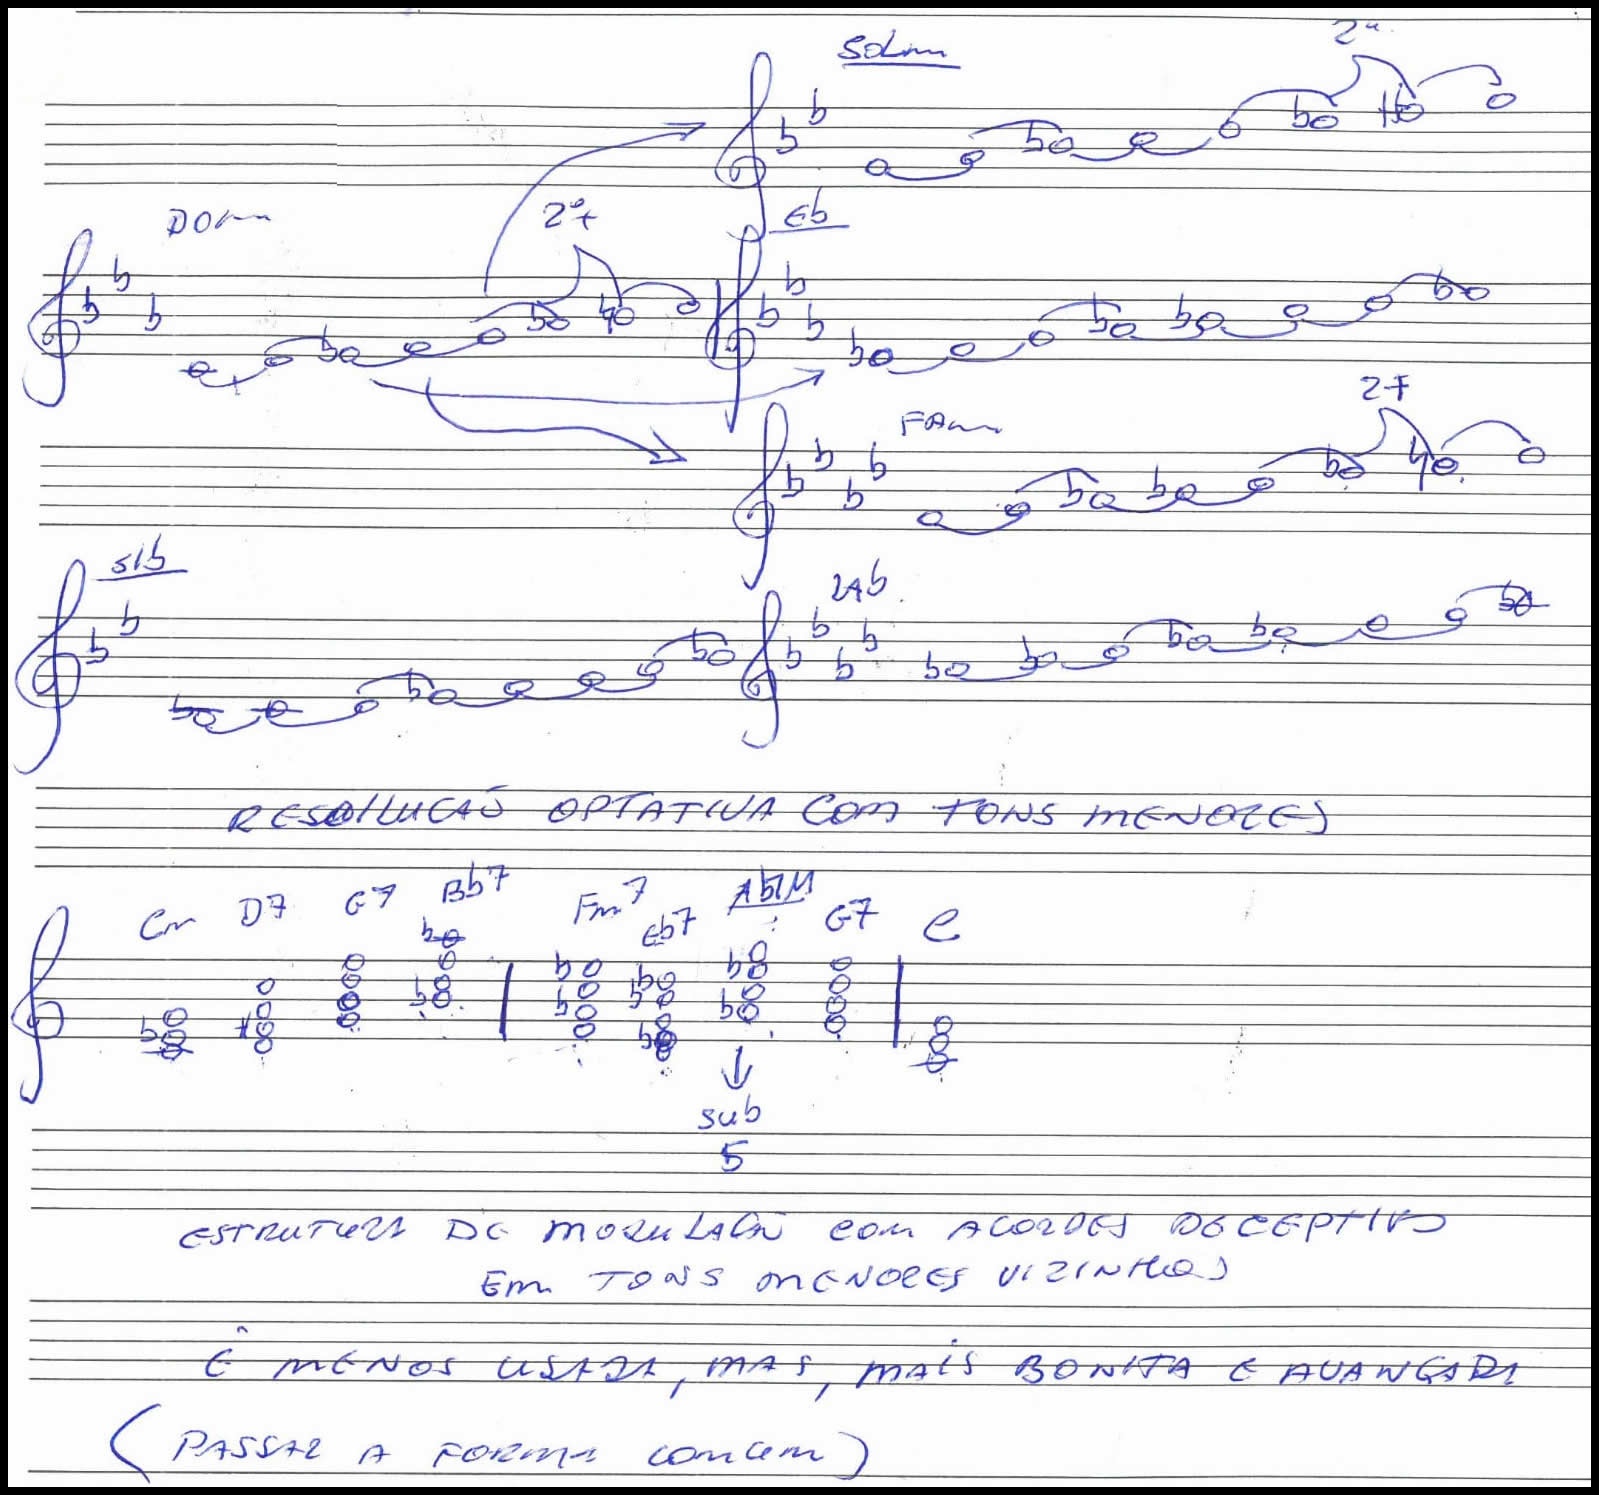 SOLm
2ª
DOm
2ª+
Eb
FAm
2+
SIb
LAb
RESOLUCAÕ OPTATIVA COM TONS MENORES
Cm D7 G7 Bb7 Fm7 Eb7 Ab7M G7 C
sub
5
ESTRUTURA DE MODULAÇÃO COM ACORDES DECEPTIVO
EM TONS MENORES VIZINHOS
Ê MENOS USADA, MAS, MAIS BONITA E AVANÇADA
(PASSAR A FORMA COMUM)